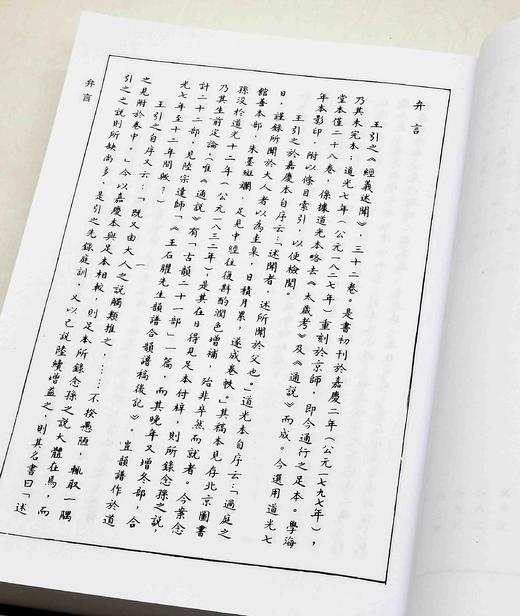 弁言
弁言
王引之《經義述聞》,三十二卷。是書初刊於嘉慶二年(公元一七九七年),
乃其未完本;道光七年(公元一八二七年)重刻於京師,即今通行之足本。學海
堂本僅二十八卷,係據道光本略去《太歲考》及《通說》而成。今選用道光七
年本影印,附以條目索引,以便檢閱。
王引之於嘉慶本自序云:「述聞者,述所聞於父也。」道光本自序云:「過庭之
日,謹錄所聞於大人者以為圭臬,日積月累,遂成卷帙。」其稿本見存北京圖書
館善本部,朱墨斑斕,足見中經往復斟酌潤色增補,殆非卒然而就者。今案念
孫沒於道光十二年(公元一八三二年),是其在日得見足本付梓,則所錄念孫之說,
乃其生前定論;唯《通說》有「古韻二十一部」一篇,而其晚年又增冬部,合
計二十二部,見陸宗達師「《王石臞先生韻譜合韻譜稿後記》。豈韻譜作於道
光七年至十二年間歟?」
王引之自序又云:「既又由大人之說觸類推之,……不揆愚陋,輒取一隅
之見附於卷中。」今以嘉慶本與足本相較,則足本所錄念孫之說大體在焉,而
引之之說則所缺尚多,是引之先錄庭訓,又以己說陸續增益之,則其名書曰「述